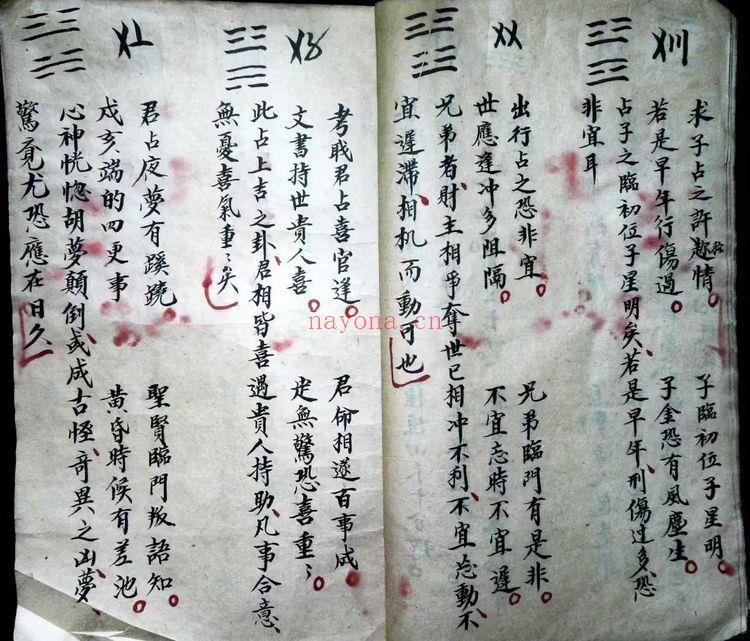 求子占之許趂情
子臨初位子星明
若是早年行傷過
子金恐有風塵生
占子之臨初位子星明矣若是早年刑傷过多恐
非宜耳
出行占之恐非宜
兄弟臨門有是非
世應逢冲多阻隔
不宜忘時不宜遲
兄弟者財主相爭奪世已相冲不利不宜忩動不
宜遲滯相机而動可也
考戝君占喜官逢
君命相遂百事成
文書持世貴人喜
走無驚恐喜重〻
此占上吉之卦君相皆喜遇貴人持助凡事合意
無憂喜氣重〻矣
君占夜夢有蹊蹺
聖賢臨門报語知
戍亥端的四更事
黄昏時候有差池
心神恍惚胡夢顛倒或成古怪奇異之凶夢
驚竟尤恐應在日久
nayona.cn